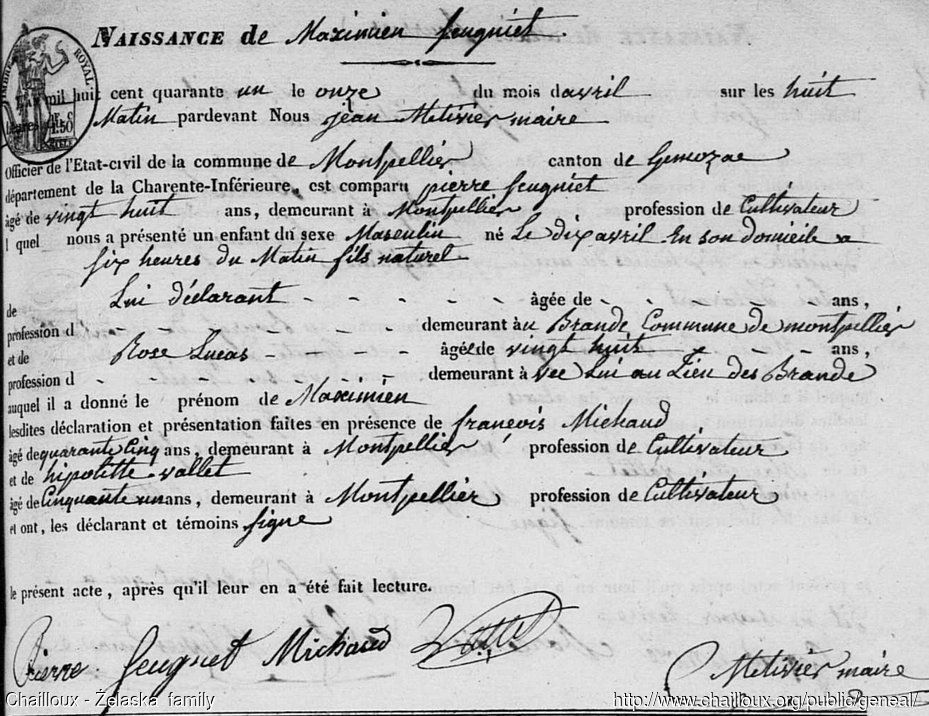 NAISSANCE de Maximien feugniet
TIMBRE ROYAL
1.50
mil huit cent quarante un le onze du mois davril sur les huit
heures Matin pardevant Nous jean Metivier maire
Officier de l'Etat-civil de la commune de Montpellier canton de Gemozac
département de la Charente-Inférieure, est comparu pierre feugniet
âgé de vingt huit ans, demeurant à Montpellier profession de Cultivateur
l quel nous a présenté un enfant du sexe Masculin né Le dix avril En son domicile a
six heures du Matin fils naturel
de Lui déclarant - - - - - âgée de - - - ans,
profession d - - - - - demeurant àu Brande Commune de montpellier
et de Rose Lucas - - - - âgée de vingt huit - - - ans,
profession d - - - - - demeurant àvec Lui au Lieu des Brande
auquel il a donné le prénom de Maximien
lesdites déclaration et présentation faites en présence de françois Michaud
âgé de quarante Cinq ans, demeurant à Montpellier profession de Cultivateur
et de hipolitte vallet
âgé de Cinquante un ans, demeurant à Montpellier profession de Cultivateur
et ont, les déclarant et témoins signe
le présent acte, après qu'il leur en a été fait lecture.
Pierre feugnet Michaud Vallet Metivier maire
Chailloux - Želaska family http://www.chailloux.org/public/geneal/